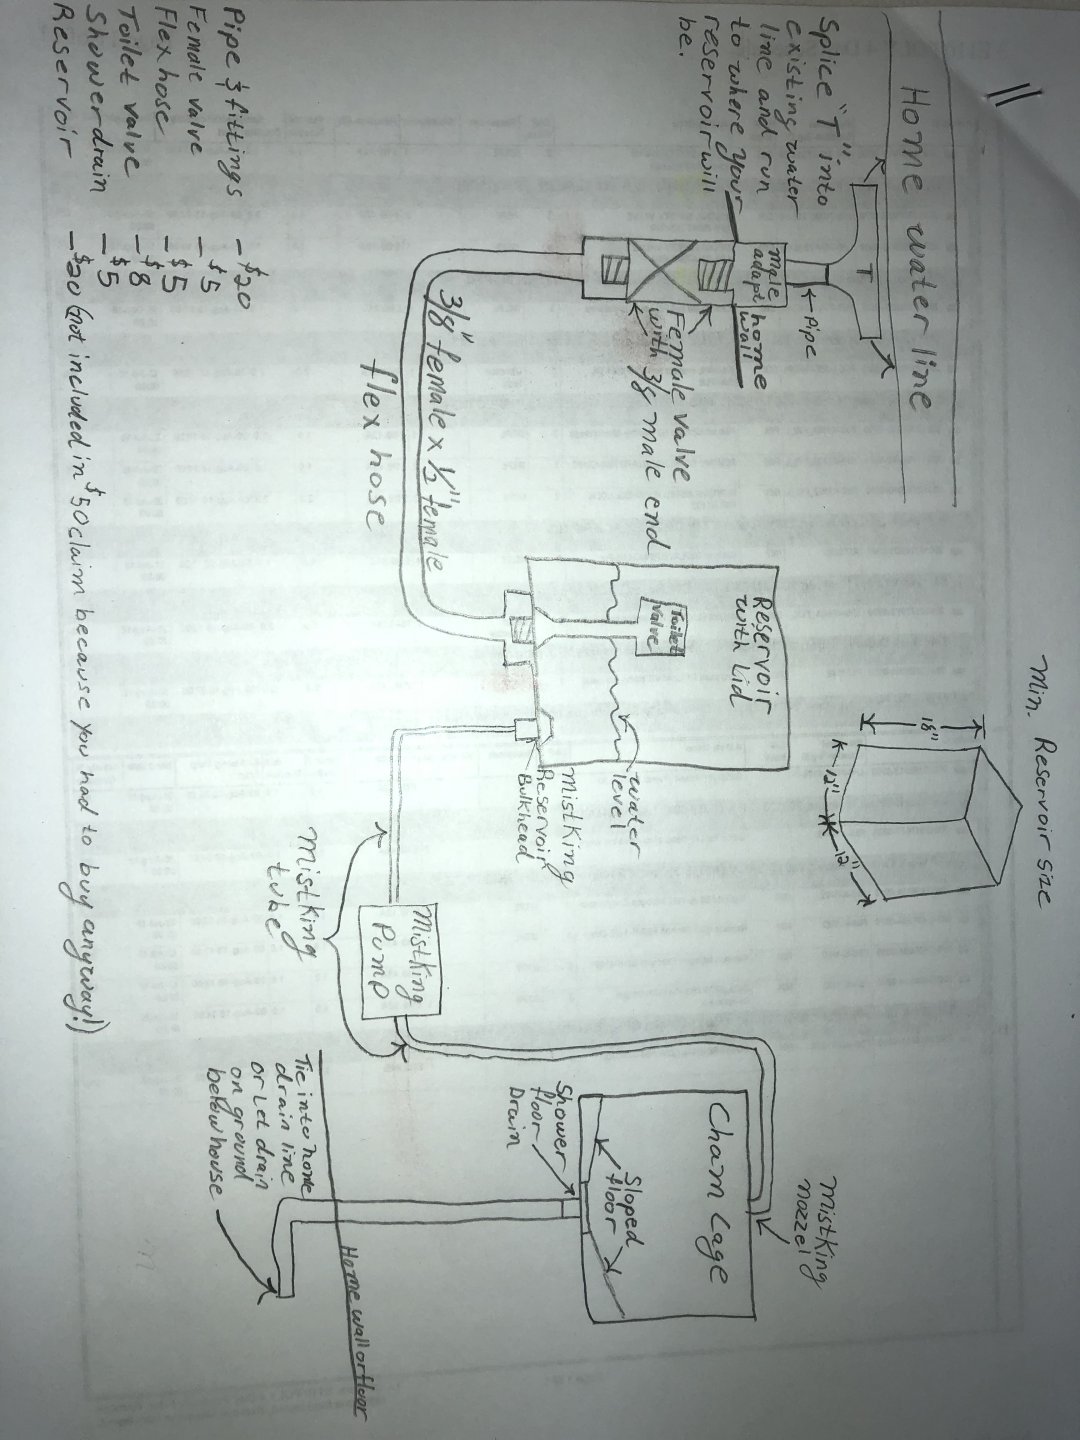 Home water line
T
Splice "T" into
existing water
line and run
to where your
reservoir will
be.
Pipe
male
adapt
home
wall
Female valve
with 3/8 male end
3/8" female x 1/2" female
flex hose
Min. Reservoir size
18"
12"
12"
Reservoir
with Lid
Toilet
valve
water
level
Mistking
Reservoir
Bulkhead
Mistking
tube
Mistking
Pump
Mistking
nozzel
Cham Cage
Sloped
floor
Shower
floor
Drain
Tie into home
drain line
or Let drain
on ground
below house
Home wall or floor
Pipe & fittings - $20
Female valve - $5
Flex hose - $5
Toilet valve - $8
Shower drain - $5
Reservoir - $20 (not included in $50 claim because you had to buy anyway!)